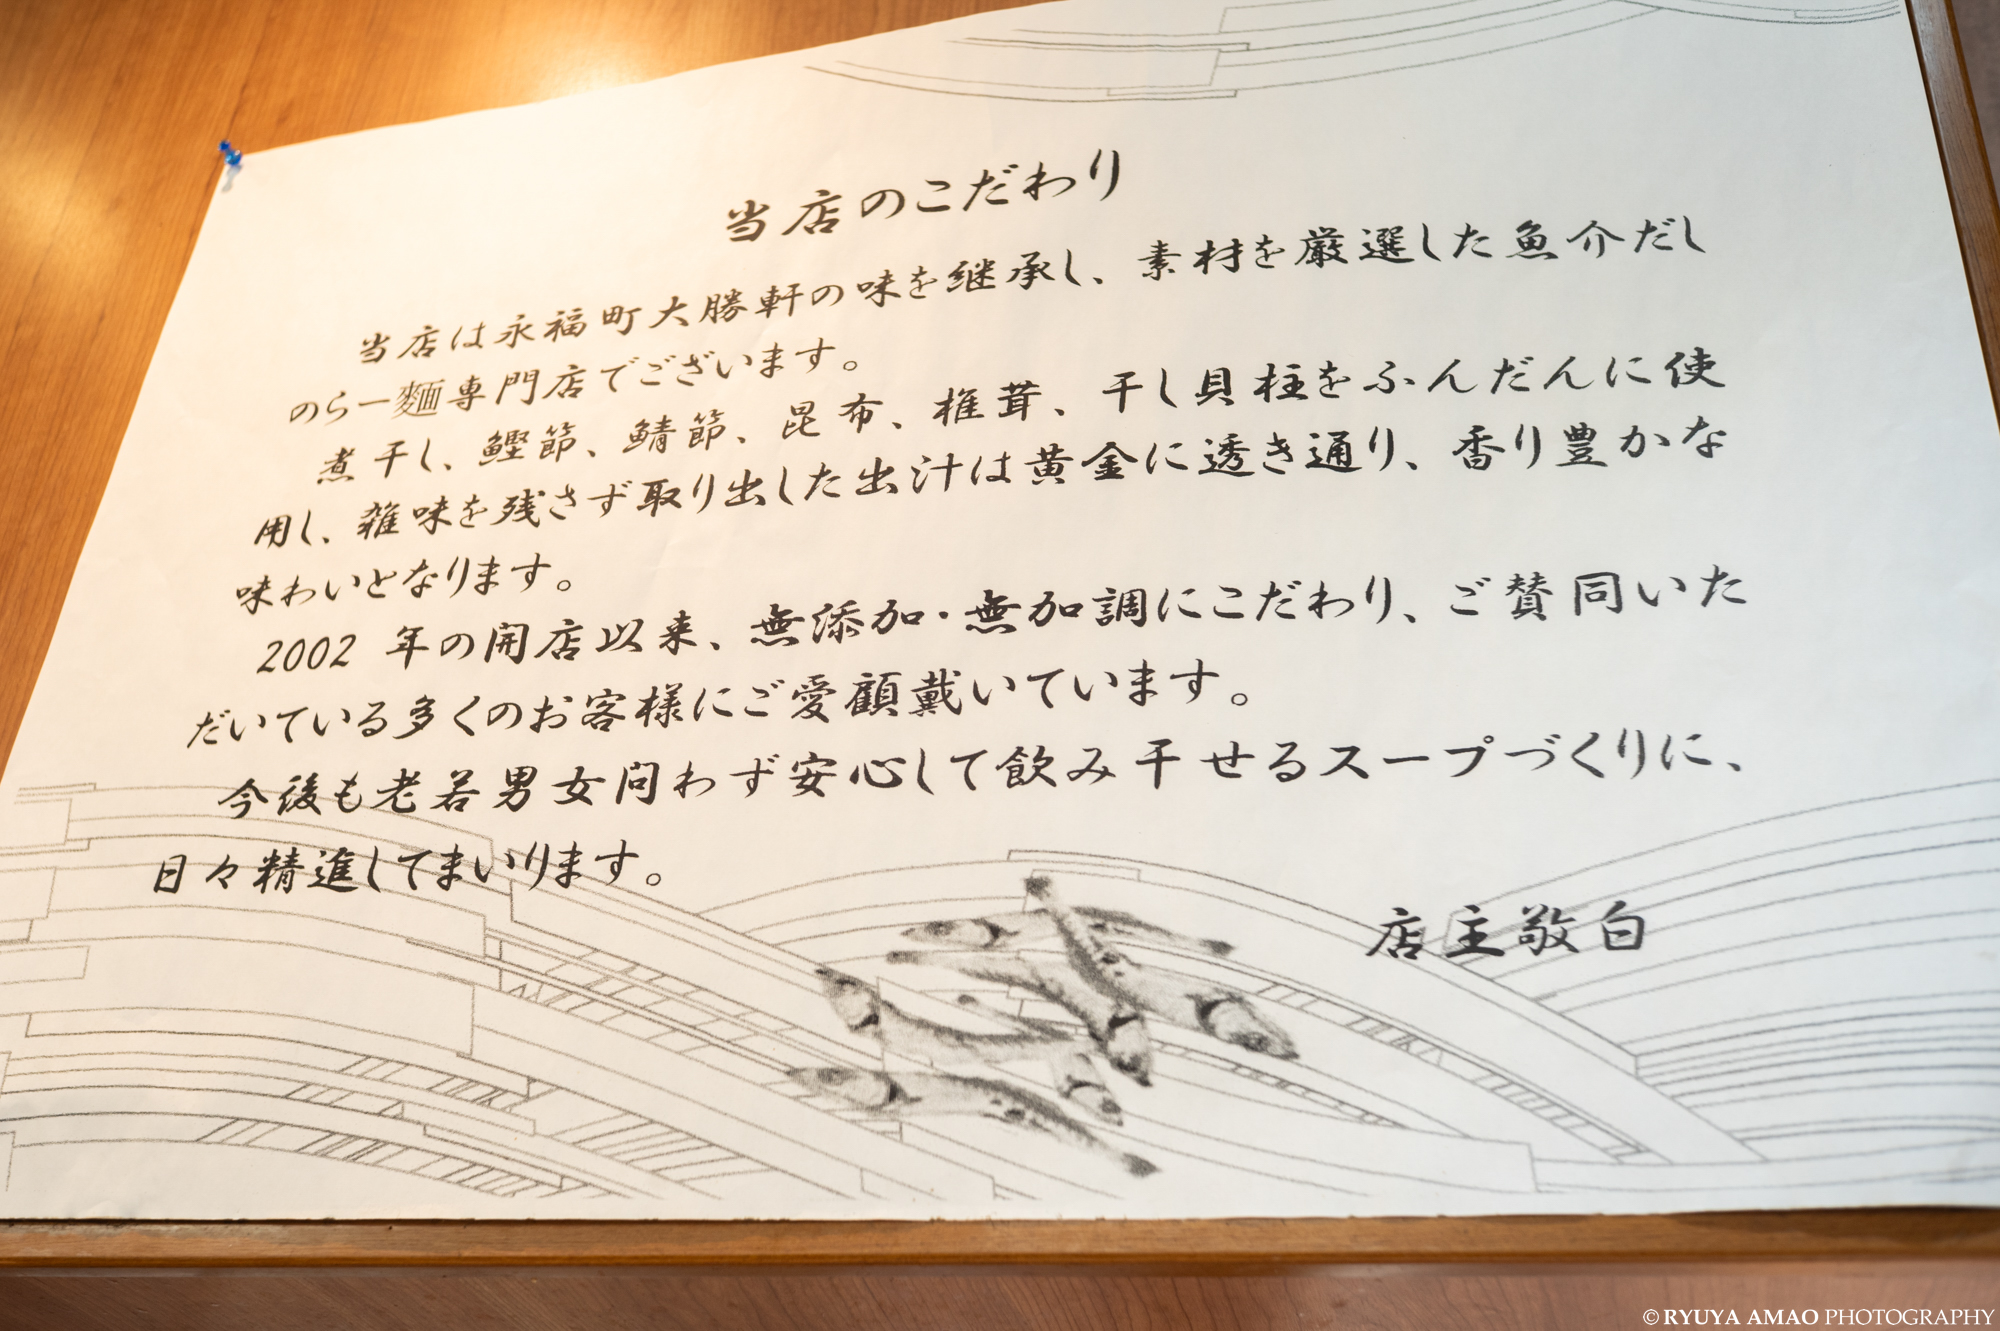 当店のこだわり
当店は永福町大勝軒の味を継承し、素材を厳選した魚介だし
のらー麵専門店でございます。
煮干し、鰹節、鯖節、昆布、椎茸、干し貝柱をふんだんに使
用し、雑味を残さず取り出した出汁は黄金に透き通り、香り豊かな
味わいとなります。
2002 年の開店以来、無添加・無加調にこだわり、ご賛同いた
だいている多くのお客様にご愛顧戴いています。
今後も老若男女問わず安心して飲み干せるスープづくりに、
日々精進してまいります。
店主敬白
© RYUYA AMAO PHOTOGRAPHY